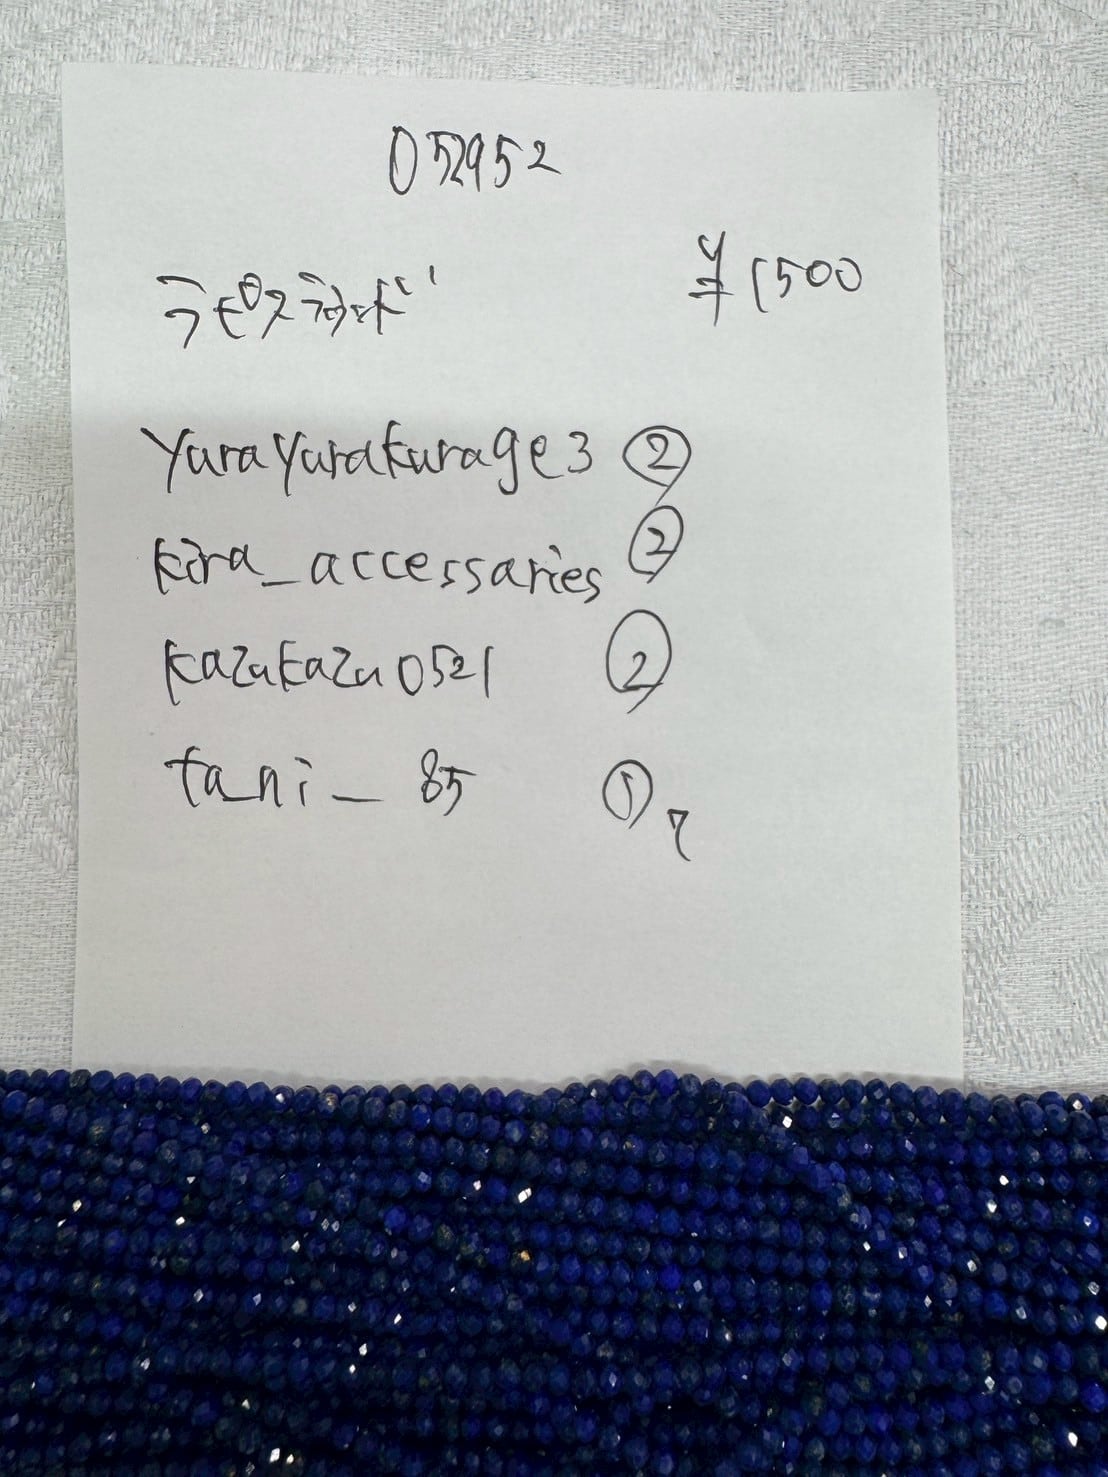 052952
ラピスラウンド ¥1500
yurayurakurage3 ②
kira_accessaries ②
kazukazu0521 ②
tani_85 ① 7